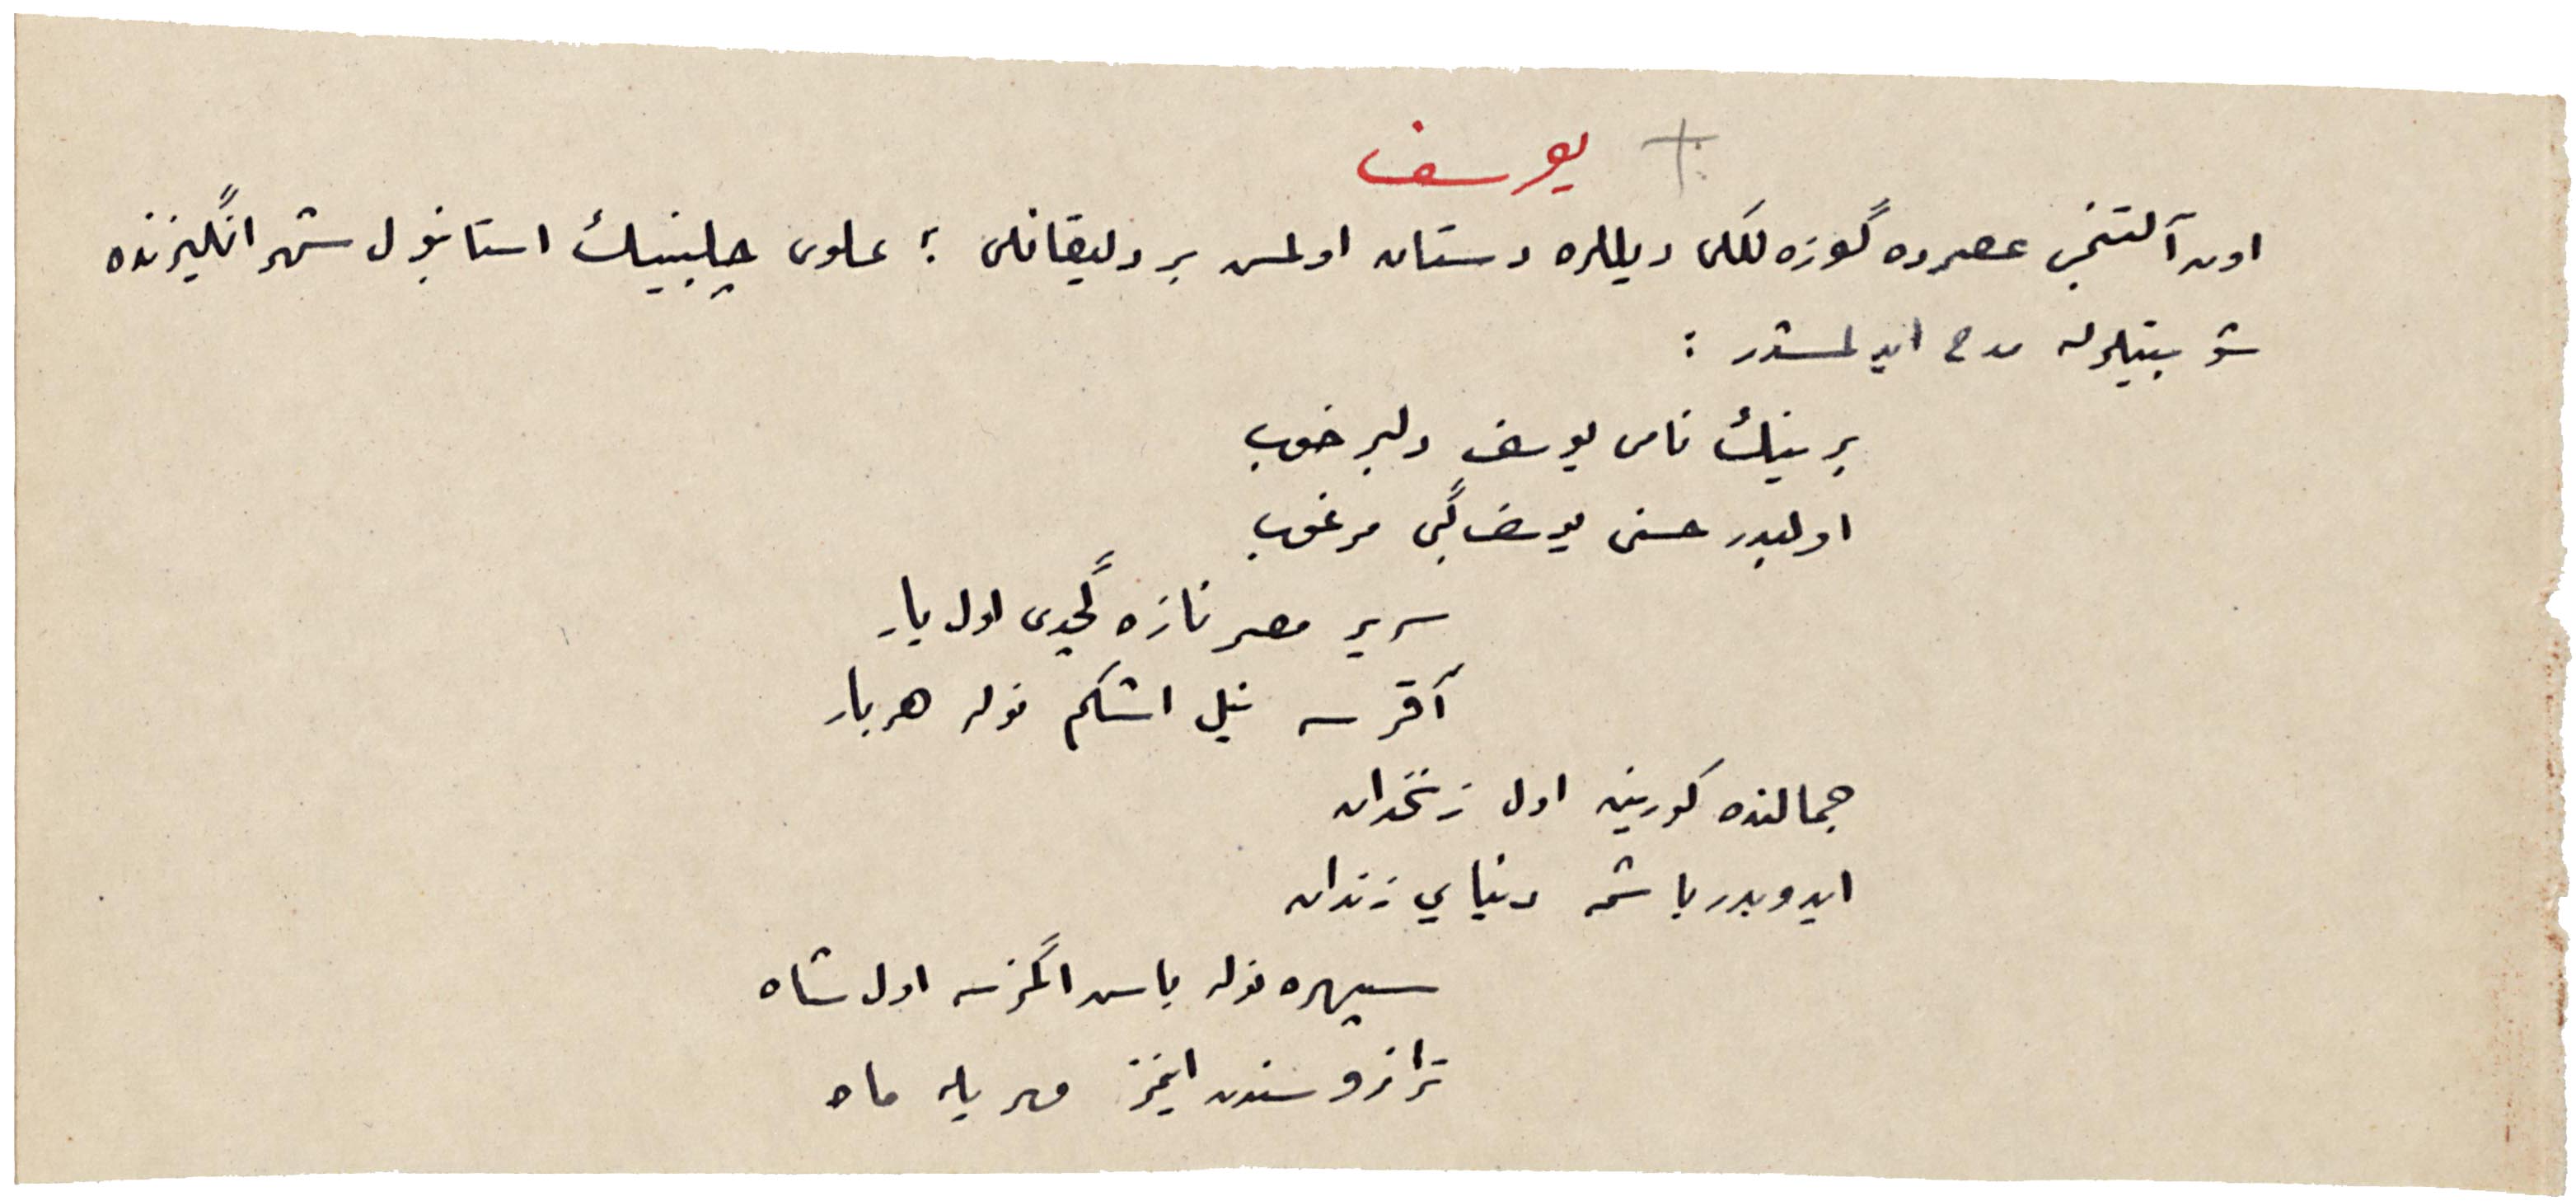 یوسف
اون آلتنجی عصرده گوزه‌للكی دیللره دستان اولمش بر دلیقانلی ؛ علوی چلبینڭ استانبول شهرانگیزنده
شو بیتلرله مدح ایدلمشدر :
برینڭ نامی یوسف دلبر خوب
اولبدر حسنی یوسف گبی مرغوب
سریر مصر نازه گچدی اول یار
آقرسه نیل اشكم نوله هر بار
جمالنده كورینه اول زنخدان
ایدوبدر باشمه دنیایی زندان
سپهره نوله باش اگمزسه اول شاه
ترازوسندن اینمز مهر یله ماه